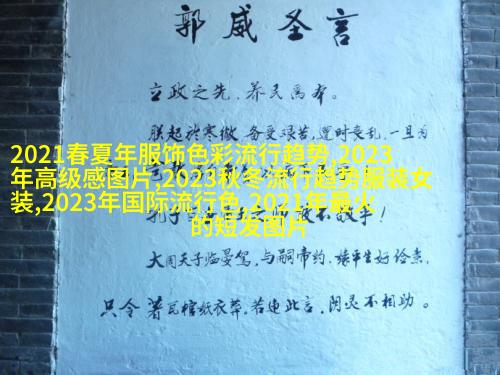 郭威圣言
立政之先，养民为本。
朕起于寒微，备受艰苦，遭时丧乱，一旦为
2021春夏年服饰色彩流行趋势,2023
年高级感图片,2023秋冬流行趋势服装女
装,2023年国际流行色,2021年最火
的短发图片
敢不致乎！
大周天子临晏驾，与嗣帝约，缘平生好俭素，
只令著瓦棺纸衣葬。若违此言，阴灵不相助。